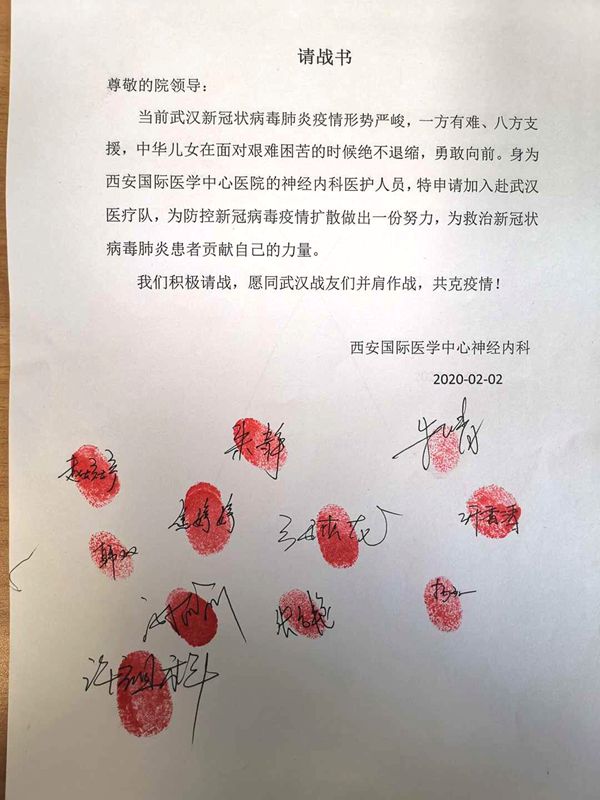 请战书
尊敬的院领导：
当前武汉新冠状病毒肺炎疫情形势严峻，一方有难、八方支
援，中华儿女在面对艰难困苦的时候绝不退缩，勇敢向前。身为
西安国际医学中心医院的神经内科医护人员，特申请加入赴武汉
医疗队，为防控新冠病毒疫情扩散做出一份努力，为救治新冠状
病毒肺炎患者贡献自己的力量。
我们积极请战，愿同武汉战友们并肩作战，共克疫情！
西安国际医学中心神经内科
2020-02-02